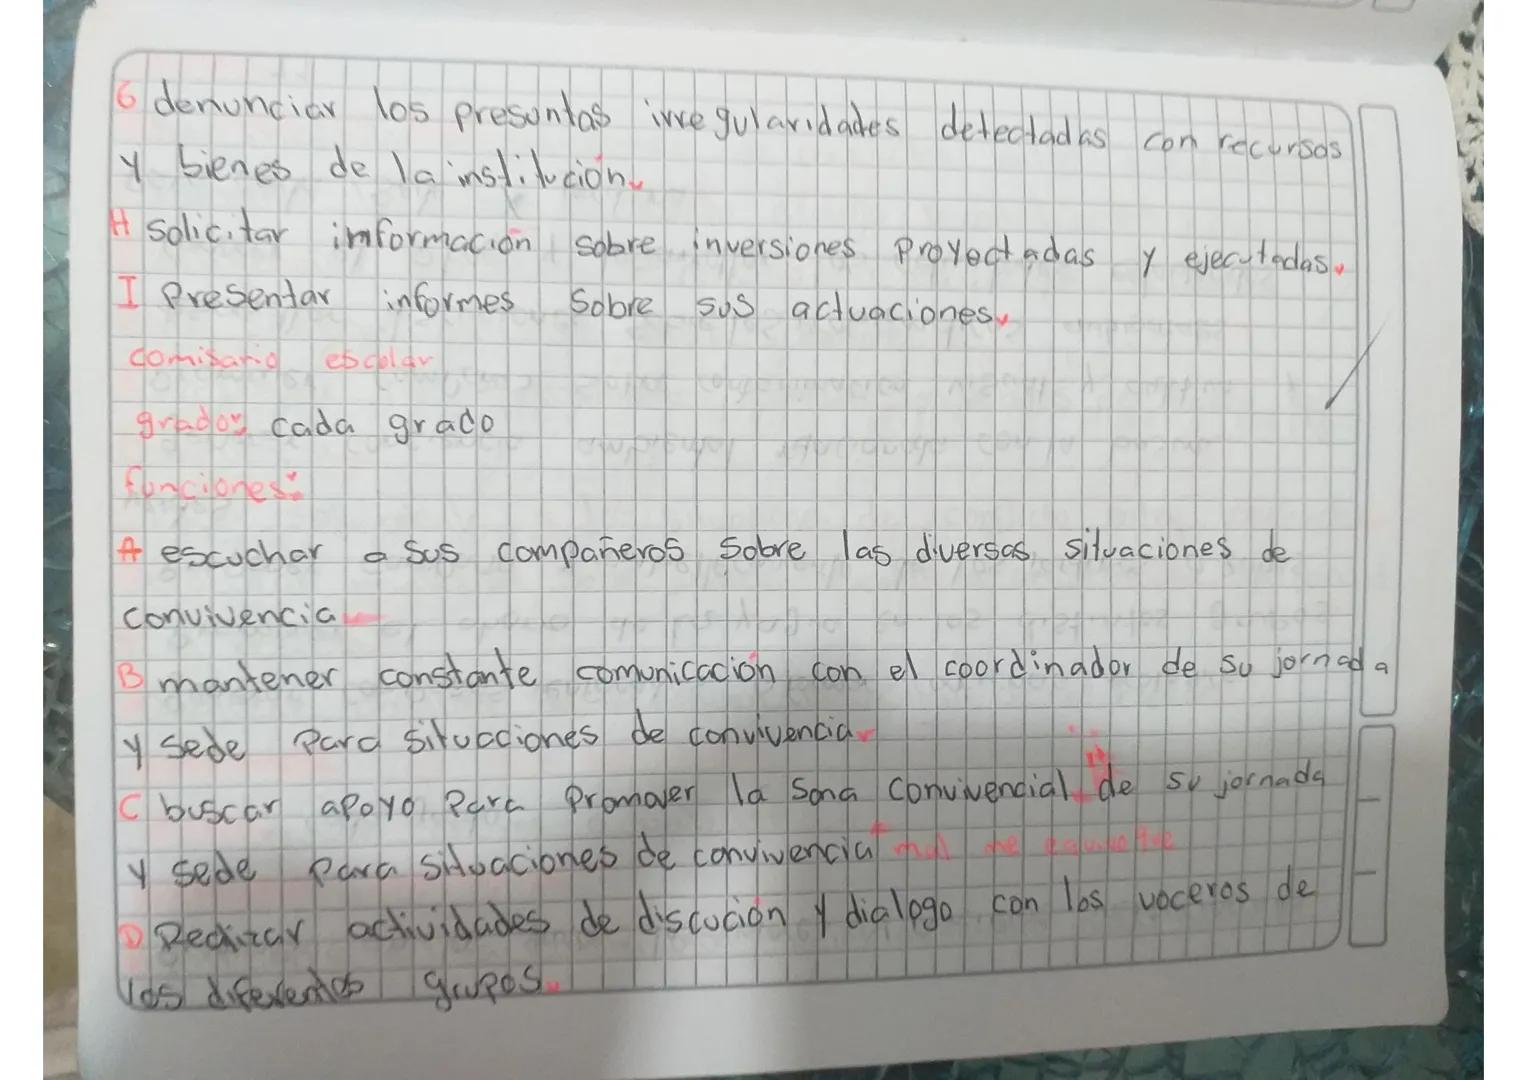 G denunciar los presuntas irregularidades detectadas con recursos
y bienes de la institución.
H solicitar imformación sobre inversiones Proyectadas y ejecutadas.
I Presentar informes Sobre sus actuaciones.
comisario escolar
grados cada grado
funciones:
A escuchar a sus compañeros sobre las diversas situaciones de
convivencia
B mantener constante comunicación con el coordinador de su jornada
y sede Para situaciones de convivencia
C buscar apoyo Para Promover la sana convivencial de su jornada
y sede para situaciones de convivencia mal me equivoque
D Realizar actividades de discución y dialogo con los voceros de
los diferentes grupos.